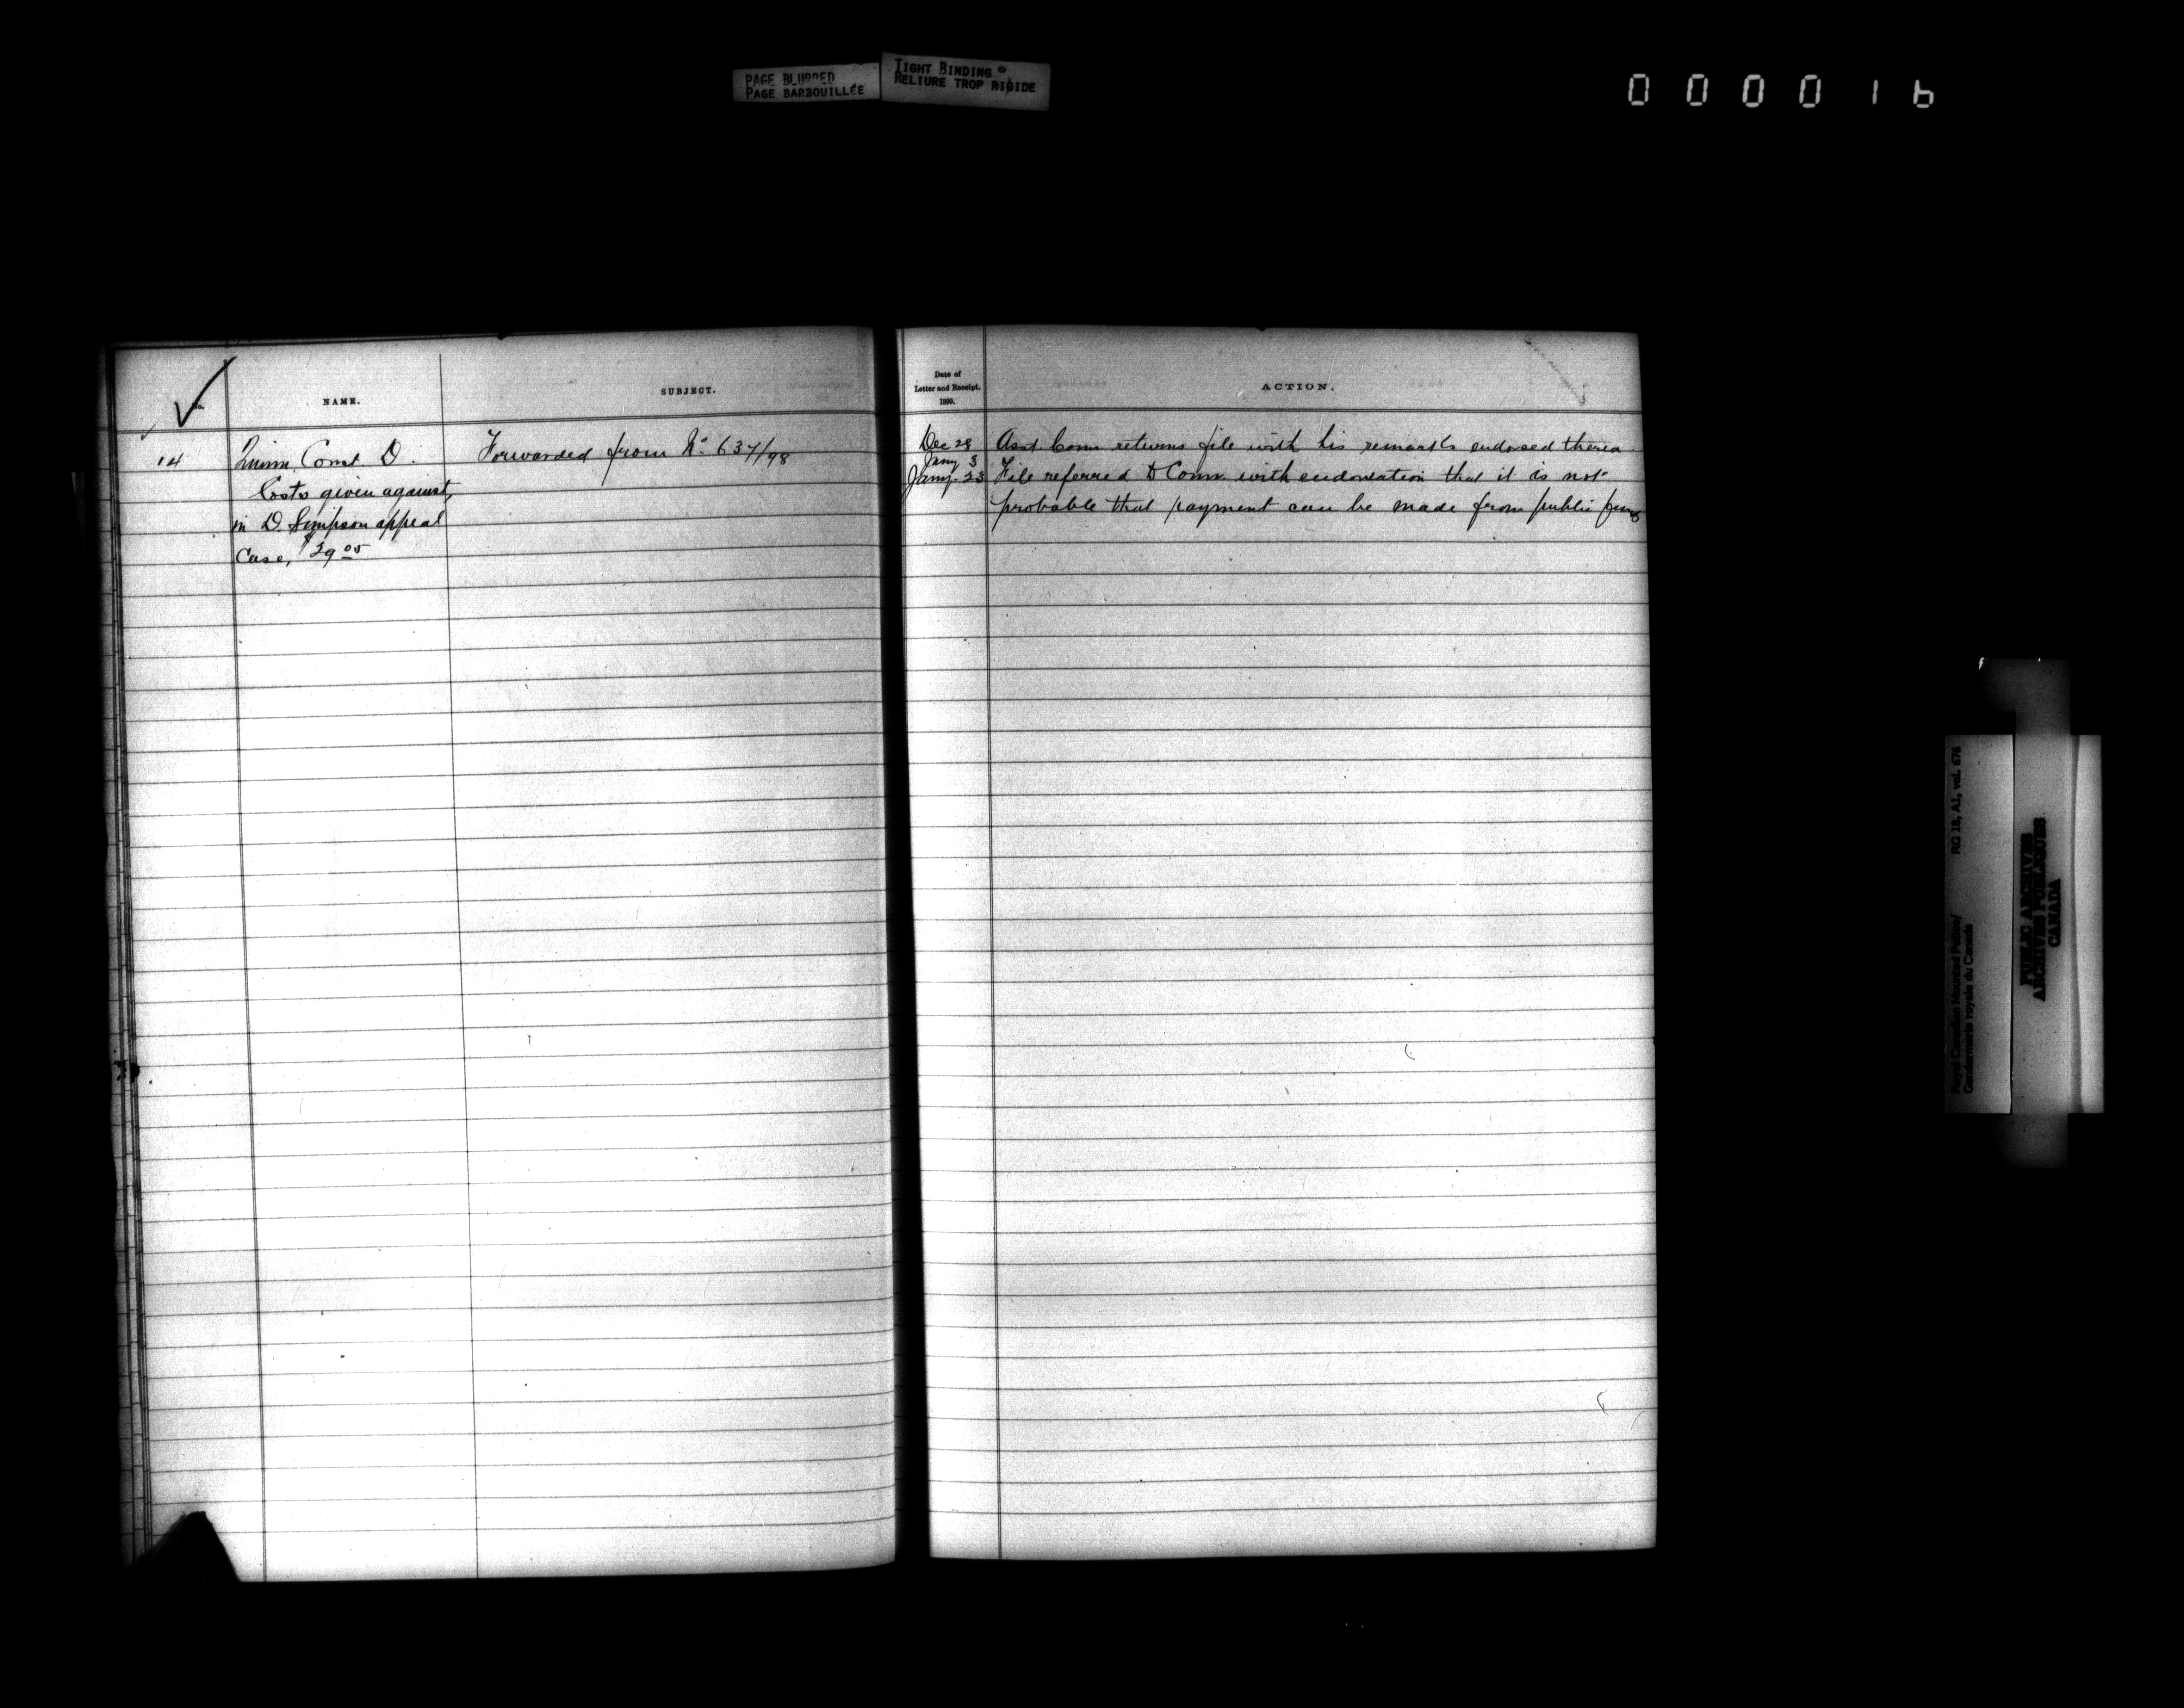 PAGE BLURRED
PAGE BARBOUILLÉE
TIGHT BINDING
RELIURE TROP RIGIDE
000016
No.
NAME.
SUBJECT.
14
Quinn. Const. D.
Costs given against,
in D. Simpson appeal
Case, $29.05
Forwarded from No. 637/98
Date of
Letter and Receipt.
1899.
ACTION.
Dec 28
Jany 3
Asst. Comr returns file with his remarks endorsed thereon.
Jany. 23
File referred to Comr. with endorsation that it is not
probable that payment can be made from public funds
Royal Canadian Mounted Police/
Gendarmerie royale du Canada
RG 18, A1, vol. 676
PUBLIC ARCHIVES
ARCHIVES PUBLIQUES
CANADA